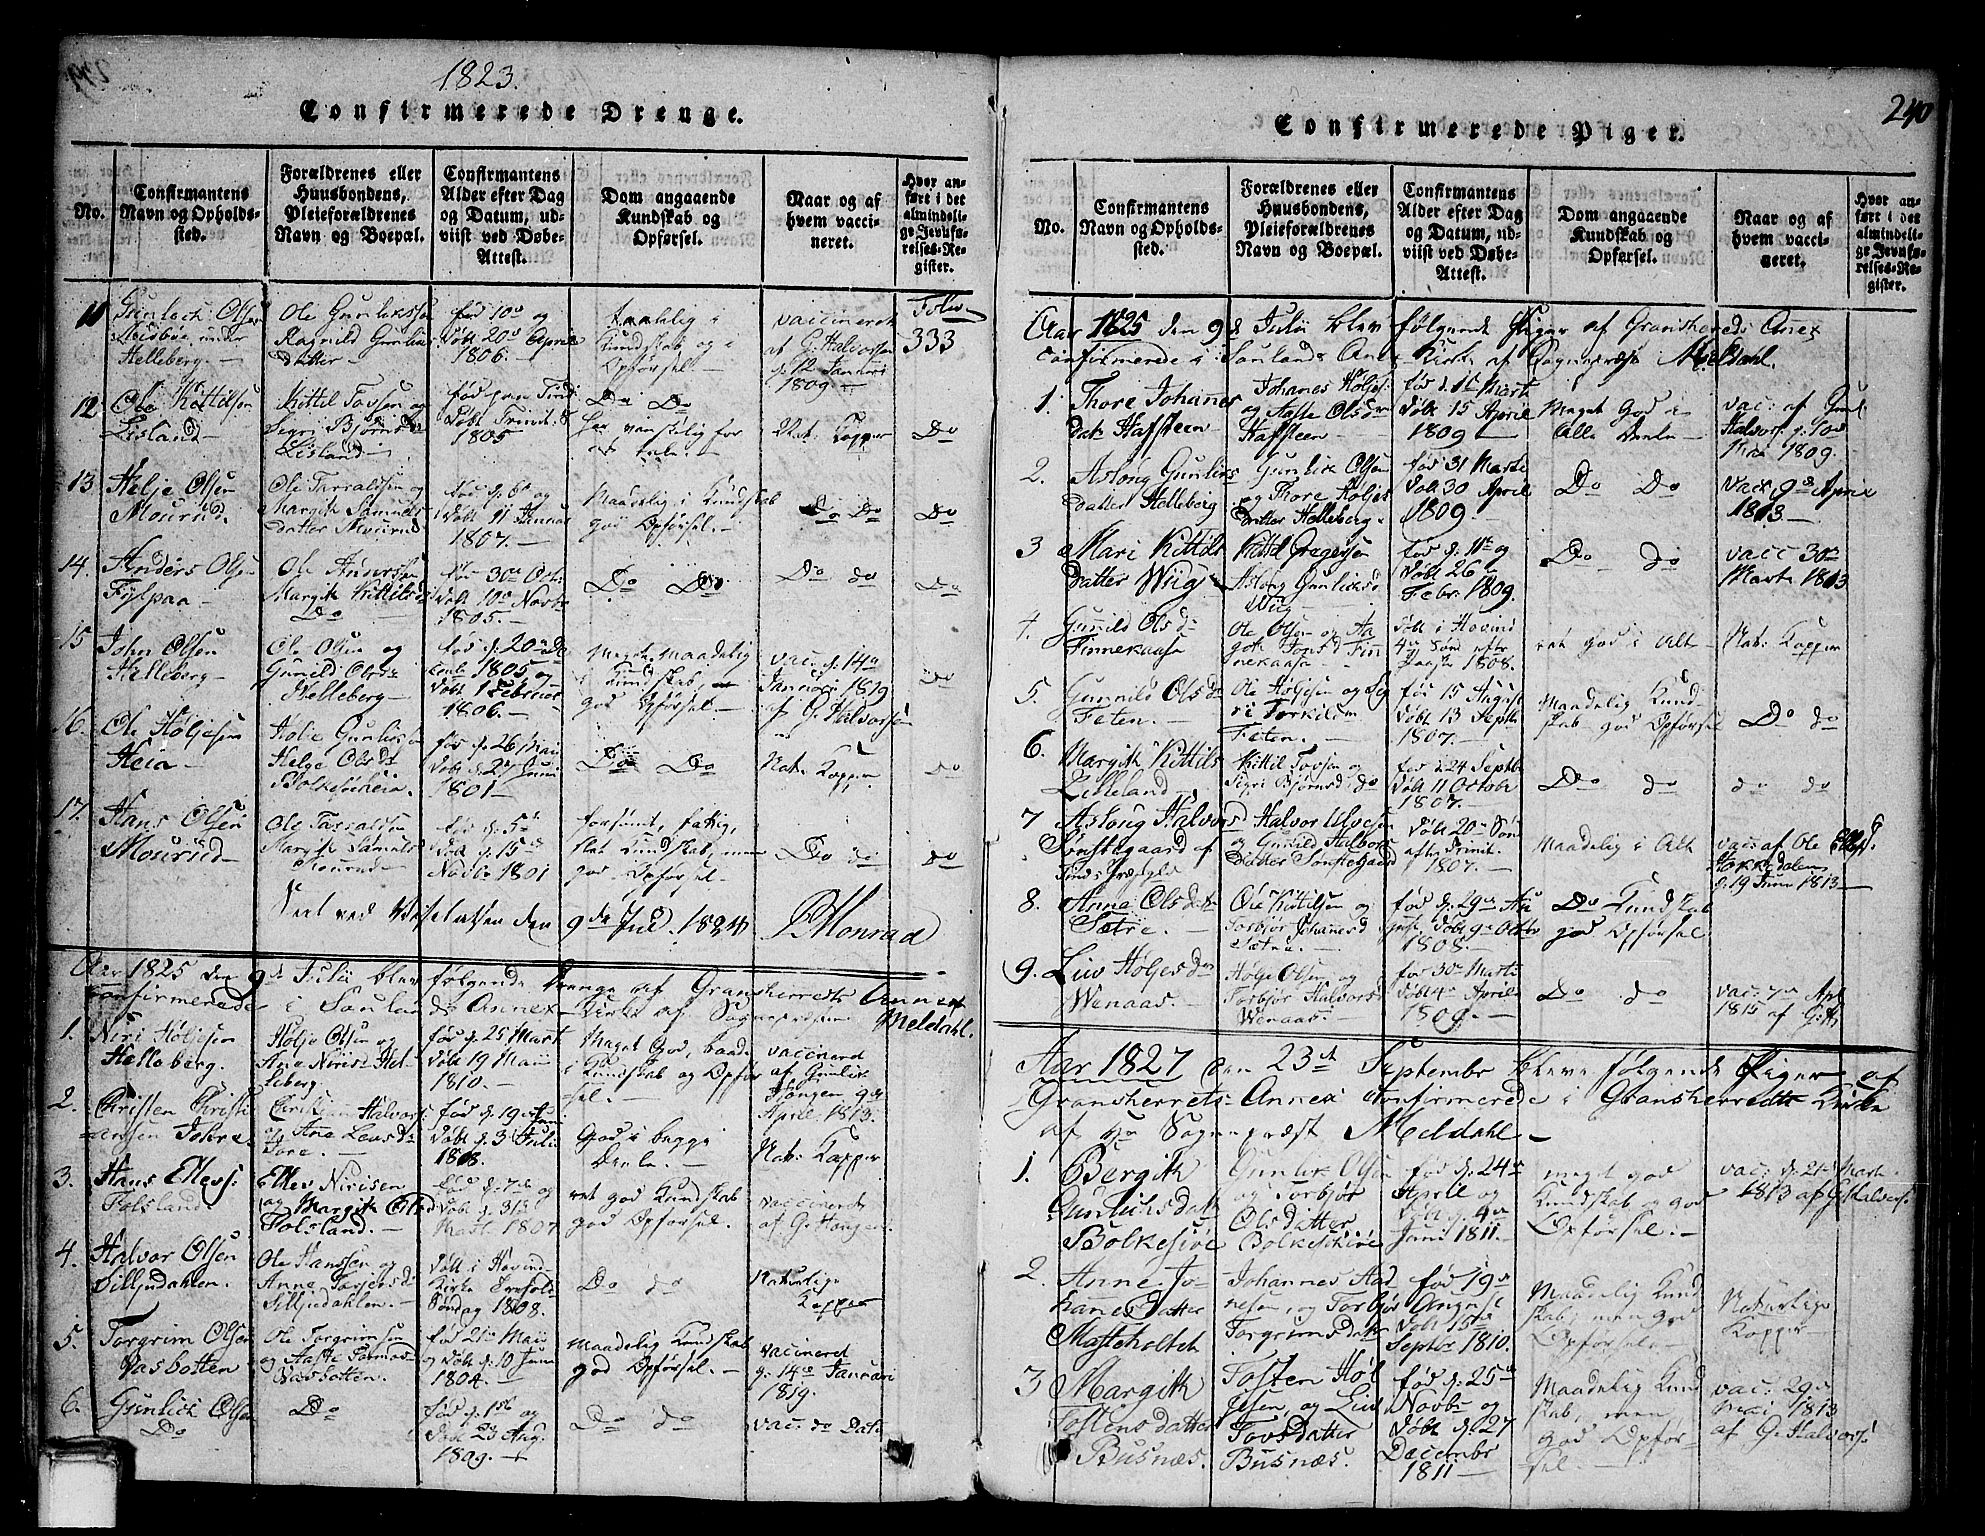 1823.
Confirmerede Drenge.
No.
Confirmantens
Navn og Opholds-
sted.
Forældrenes eller
Huusbondens,
Pleieforældrenes
Navn og Boepæl.
Confirmantens
Alder efter Dag
og Datum, ud-
viist ved Døbe-
Attest.
Dom angaaende
Kundskab og
Opførsel.
Naar og af
hvem vacci-
neret.
Hvor an-
ført i det
almindeli-
ge Jevnfø-
relses-Re-
gister.
11
Gunlech Olsen
under
Helleberg
Ole Gunlikssen
Ragnild Gunliks
datter
fød 10de og
døbt 20de April
1806.
taalelig i
Kundskab og i
Opførsel
vaccineret
af G. Halvorsen
d. 12 Januari
1809
Folio
333
12
Ole Kittilsen
Lisland
Kittil Tovsen og
Sigri Bjørnsd.
Lisland
1805
Do Do
Nat. Kopper
Do
13
Helje Olsen
Mourud.
Ole Tarraldsen og
Margith Samuels
datter Mourud
fød d. 6te og
døbt 11 Januar
1807.
Maadelig i Kundskab
god Opførsel.
Do Do
Do
14.
Anders Olsen
Fylpaa
Ole Andersen
Margith Kittilsd.
Do
fød 30te Oct.
døbt 10de Novbr
1805.
Do Do
Do do
Do
15
John Olsen
Helleberg
Ole Olsen og
Gunild Olsd.
Helleberg
fød d. 20de De
cembr 1805 og
døbt 1 Februar
1806.
Meget Maadelig
i Kundskab
god Opførsel
vac. d. 14de
Januari 1819
af G. Halvorsen
do
16.
Ole Høljesen
Heia
Hølje Gunlikssen
Helge Olsdt
Bolkesjøheia
fød d. 26 Mai
døbt d. 24 Juni
1801
Do Do
Nat. Kopper
do
17.
Hans Olsen
Mourud
Ole Tarraldsen
Margith Samuels
Mourud
fød d. 5te
døbt d. 15de
Novbr 1801
forsømt, fattig,
slet Kundskab, men
god Opførsel
Do do
do
Seet ved Visitatsen den 9de Jul. 1824 Monrad
Aar 1825 den 9de Julii blev følgende Drenge af Gransherrets Annex
confirmerede i Saulands Annex Kirke af Sognepræsten Meldahl.
1.
Niri Høljesen
Helleberg.
Hølje Olsen og
Ane Niris Hel-
leberg.
fød d. 25 Mart
døbt 19 Maii
1810.
Meget God, baade
i Kundskab og Opfør
sel.
vaccineret
af Gunlik
Hongen 9de
April 1813
2.
Christen Christi
ansen Johre
Christian Halvors.
og Ane Larsd.
Jore.
fød d. 19de Juni
døbt d. 3 Julii
1808.
God i begge
Deele.
Nat. Kopper
3.
Hans Ellevs.
Folsland
Ellev Nirisen
og Margith Olsd
Folsland.
fød d. 7de og
døbt d. 31te
Marti 1807
ret god Kundskab
god Opførsel
vaccineret
af G. Hongen
4.
Halvor Olsen
Silljudahlen.
Ole Hanssen og
Anne Torgersd.
Silljudahlen.
døbt i Hovind
Kirke
Søndag 1808.
Do do
Naturlige
Kopper
5.
Torgrim Olsen
Vasbotten
Ole Torgrimsen
og Aaste
Vasbotten.
fød 21de Maii
og døbt d. 10 Junii
1804.
Maadelig Kundskab
god Opførsel.
vaccineret
d. 14de Januari
1819.
6.
Gunlich Olsen
Do
Do
fød d. 1ste og
døbt 23 Aug.
1809.
Do do
vac. do Dato
240
Confirmerede Piger.
No.
Confirmantens
Navn og Opholds-
sted.
Forældrenes eller
Huusbondens,
Pleieforældrenes
Navn og Boepæl.
Confirmantens
Alder efter Dag
og Datum, ud-
viist ved Døbe-
Attest.
Dom angaaende
Kundskab og
Opførsel.
Naar og af
hvem vacci-
neret.
Hvor an-
ført i det
almindeli-
ge Jevnfø-
relses-Re-
gister.
Aar 1825 den 9de Julii blev følgende Piger af Gransherreds Annex
confirmerede i Saulands Annex Kirke af Sognepræst Meldahl.
1.
Thore Johannes
datr Hafsteen
Johanes Høljes.
og Aaste Olsdr
Hafsteen
fød d. 11 Mart
døbt 15 April
1809
Meget God i
Alle Deele
vac: af Gunl.
Halvors.
1809.
2.
Aslong Gunliks
datter Helleberg
Gunlik Olsen
og Thore Høljes
datter Helleberg.
fød 31 Marti
døbt 30 April
1809.
Do Do
Vac. 9de Aprie
1813
3
Mari Kittils
datter Wiig
Kittil Gregersen
Aslong Gunliksd
Wiig
fød d. 11te og
døbt 26
Febr. 1809.
Do do
vacc 30te
Marts 1813
4.
Gunnild Olsdr
Finnekaasa
Ole Olsen og Aa
Finnekaasa
døbt i Hovind
4de Sønd. efter
Paaske 1808.
ret god i Alt
Nat. Kopper
5.
Gunnild Olsdr
Feten.
Ole Høljesen og Sig
ri Torkilds
Feten.
fød 15 August
døbt 13 Septbr
1807.
Maadelig Kund
skab god Opførsel
Do do
6.
Margith Kittils
Lisleland
Kittil Tovsen og
Sigri Bjørnsd. do
fød d. 24 Septbr
døbt 11 Octobr
1807.
Do do
do do
7
Aslong Halvors
Sønstegaard af
Halvor Ulvesen
og Gunild Halvors
datter Sønstegaard
døbt 20de Sønd.
efter Trinit.
1807.
Maadelig i Alt
vac: af Ole Ellefs.
Hakkedalen
d. 19 Junii 1813
8.
Anne Olsdatr
Sætre.
Ole Kittilsen og
Torbjør Johanesd
Sætre.
fød d. 29de Au
gust, døbt 9de Octbr
1808.
Do Kundskab
god Opførsel
9.
Liv Høljesdr
Wenaas.
Hølje Olsen og
Torbjør Halvors
Wenaas.
fød 30te Marti
døbt 4de April
1809.
Do do
vac. 7de Apl
1815 af G. H.
Aar 1827 den 23de September bleve følgende Piger af
Gransherrets Annex confirmerede i Gransherreds Kirke
af Hr Sognepræst Meldahl.
1.
Bergith
Gunliksdatt
Bolkesjøe
Gunlik Olsen
og Torbjør
Olsdatter
Bolkeskiøe
fød d. 24de
April og
døbt d. 4de
Juni 1811.
meget god
Kundskab og god
Opførsel.
vac: d. 21de Marti
1813 af G. Halvors.
2.
Anne Jo-
hanesdatter
Mosteholtet
Johannes Aad
nesen, og Torbjør
Torgrimsdatter
fød 19de
August
døbt 15de
Septbr 1810.
Maadelig Kund
skab, men god
Opførsel
Naturlige
Kopper
3
Margith
Tostensdatter
Busnæs.
Tosten Høl
jesen, og Liv
Tovsdatter
Busnæs.
fød d. 25de
Novbr
døbt d. 27
Decembr
1811
Maadelig Kund
skab, men
god Opfør-
sel
vac: 29de
Mai 1813
af G. Halvors.